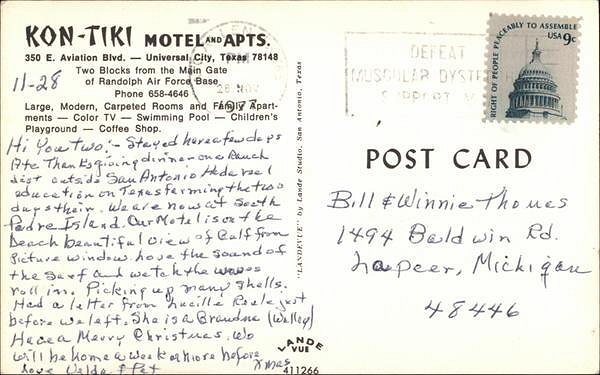 KON-TIKI MOTEL AND APTS.
350 E. Aviation Blvd. — Universal City, Texas 78148
Two Blocks from the Main Gate
of Randolph Air Force Base
Phone 658-4646
Large, Modern, Carpeted Rooms and Family Apart-
ments — Color TV — Swimming Pool — Children's
Playground — Coffee Shop.
11-28
Hi You two:- Stayed here a few days
Ate Thanksgiving dinner on a Ranch
dist outside San Antonio
education on Texas farming the two
days their. We are now at South
Padre Island. Our Motel is on the
beach beautiful view of Gulf from
Picture window. love the sound of
the surf and watch the waves
roll in. Picking up many shells.
Had a letter from Lucille just
before we left. She is a Grandma (Walley)
Have a Merry Christmas. We
will be home a week or more before
Xmas
Love Velda & Pat
28 NOV
1977
DEFEAT
MUSCULAR DYSTROPHY
SUPPORT
RIGHT OF PEOPLE PEACEABLY TO ASSEMBLE
USA 9c
"LANDEVUE" by Lande Studio, San Antonio, Texas
POST CARD
Bill & Winnie Thomas
1494 Baldwin Rd.
Lapeer, Michigan
48446
LANDE
VUE
411266